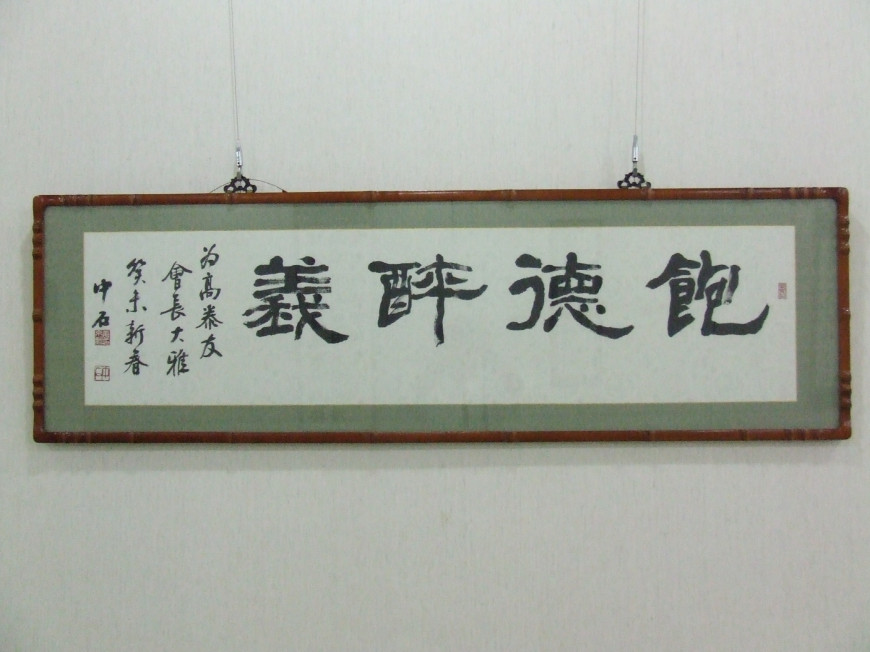 飽德醉義
為高泰友
會長大雅
癸未新春
中石